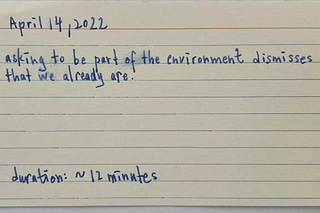 April 14, 2022
asking to be part of the environment dismisses
that we already are.
duration: ~ 12 minutes